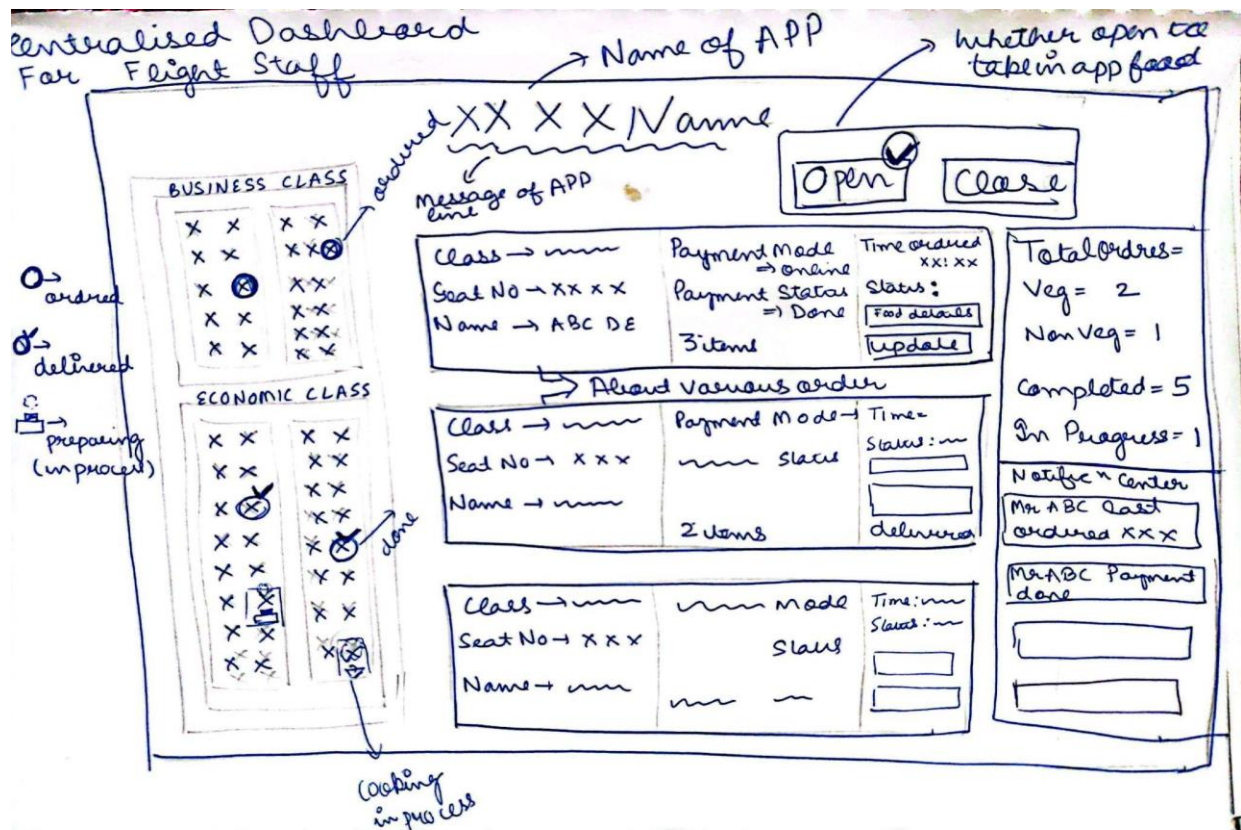 Centralised Dashboard
For Flight Staff
Name of APP
whether open to
take in app food
XX X X Name
ordered
Message of APP
line
Open
Close
BUSINESS CLASS
X X X X
X X X X X
X X X X
X X X X X
X X X X
ordred
delivered
preparing
(in process)
ECONOMIC CLASS
X X X X
X X X X
X X X X
X X
X X X X
X X X X
X X X X
X X
X X X X
done
Cooking
in process
Class →
Seat No → XX XX
Name → ABC DE
Payment Mode
⇒ online
Payment Status
⇒ Done
3 items
Time ordered
XX: XX
Status:
Food details
update
About various order
Class →
Seat No → X X X
Name →
Payment Mode →
Status
2 items
Time =
Status:
delivered
Class →
Seat No → X X X
Name →
Mode
Status
Time:
Status:
Total ordres =
Veg = 2
Non Veg = 1
Completed = 5
In Progress = 1
Notific n Center
Mr ABC last
ordered X X X
Mr ABC Payment
done